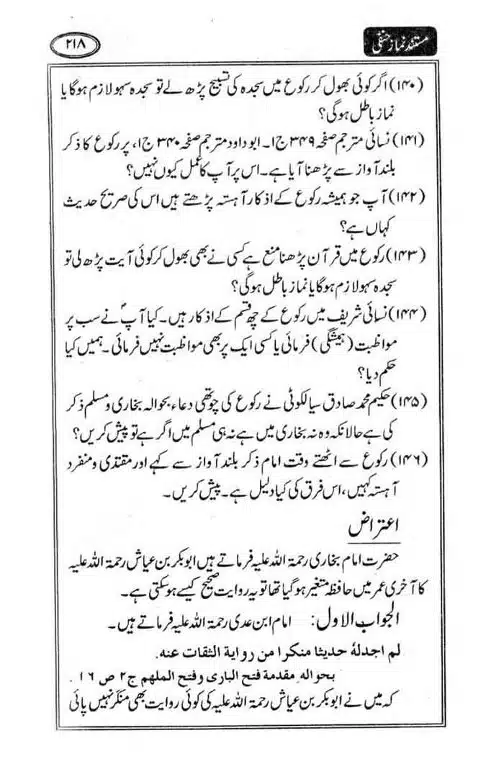 مستند نماز حنفی
۲۱۸
(۱۴۰) اگر کوئی بھول کر رکوع میں سجدہ کی تسبیح پڑھ لے تو سجدہ سہو لازم ہوگا یا
نماز باطل ہوگی؟
(۱۴۱) نسائی مترجم صفحہ ۳۴۹ ج۱۔ ابوداود مترجم صفحہ ۳۴۰ ج۱، پر رکوع کا ذکر
بلند آواز سے پڑھنا آیا ہے۔ اس پر آپ کا عمل کیوں نہیں؟
(۱۴۲) آپ جو ہمیشہ رکوع کے اذکار آہستہ پڑھتے ہیں اس کی صریح حدیث
کہاں ہے؟
(۱۴۳) رکوع میں قرآن پڑھنا منع ہے کسی نے بھی بھول کر کوئی آیت پڑھ لی تو
سجدہ سہو لازم ہوگا یا نماز باطل ہوگی؟
(۱۴۴) نسائی شریف میں رکوع کے چھ قسم کے اذکار ہیں۔ کیا آپؐ نے سب پر
مواظبت (ہمیشگی) فرمائی یا کسی ایک پر بھی مواظبت نہیں فرمائی۔ ہمیں کیا
حکم دیا؟
(۱۴۵) حکیم محمد صادق سیالکوٹی نے رکوع کی چوتھی دعاء بحوالہ بخاری و مسلم ذکر
کی ہے حالانکہ وہ نہ بخاری میں ہے نہ ہی مسلم میں اگر ہے تو پیش کریں؟
(۱۴۶) رکوع سے اٹھتے وقت امام ذکر بلند آواز سے کہے اور مقتدی و منفرد
آہستہ کہیں، اس فرق کی کیا دلیل ہے۔ پیش کریں۔
اعتراض
حضرت امام بخاری رحمۃ اللہ علیہ فرماتے ہیں ابوبکر بن عیاش رحمۃ اللہ علیہ
کا آخری عمر میں حافظہ متغیر ہوگیا تھا تو یہ روایت صحیح کیسے ہوسکتی ہے۔
الجواب الاول: امام ابن عدی رحمۃ اللہ علیہ فرماتے ہیں۔
لم اجدلهٗ حدیثا منکرا من روایة الثقات عنه.
بحواله. مقدمة فتح الباری وفتح الملهم ج۲ ص ۱۶ .
کہ میں نے ابوبکر بن عیاش رحمۃ اللہ علیہ کی کوئی روایت بھی منکر نہیں پائی